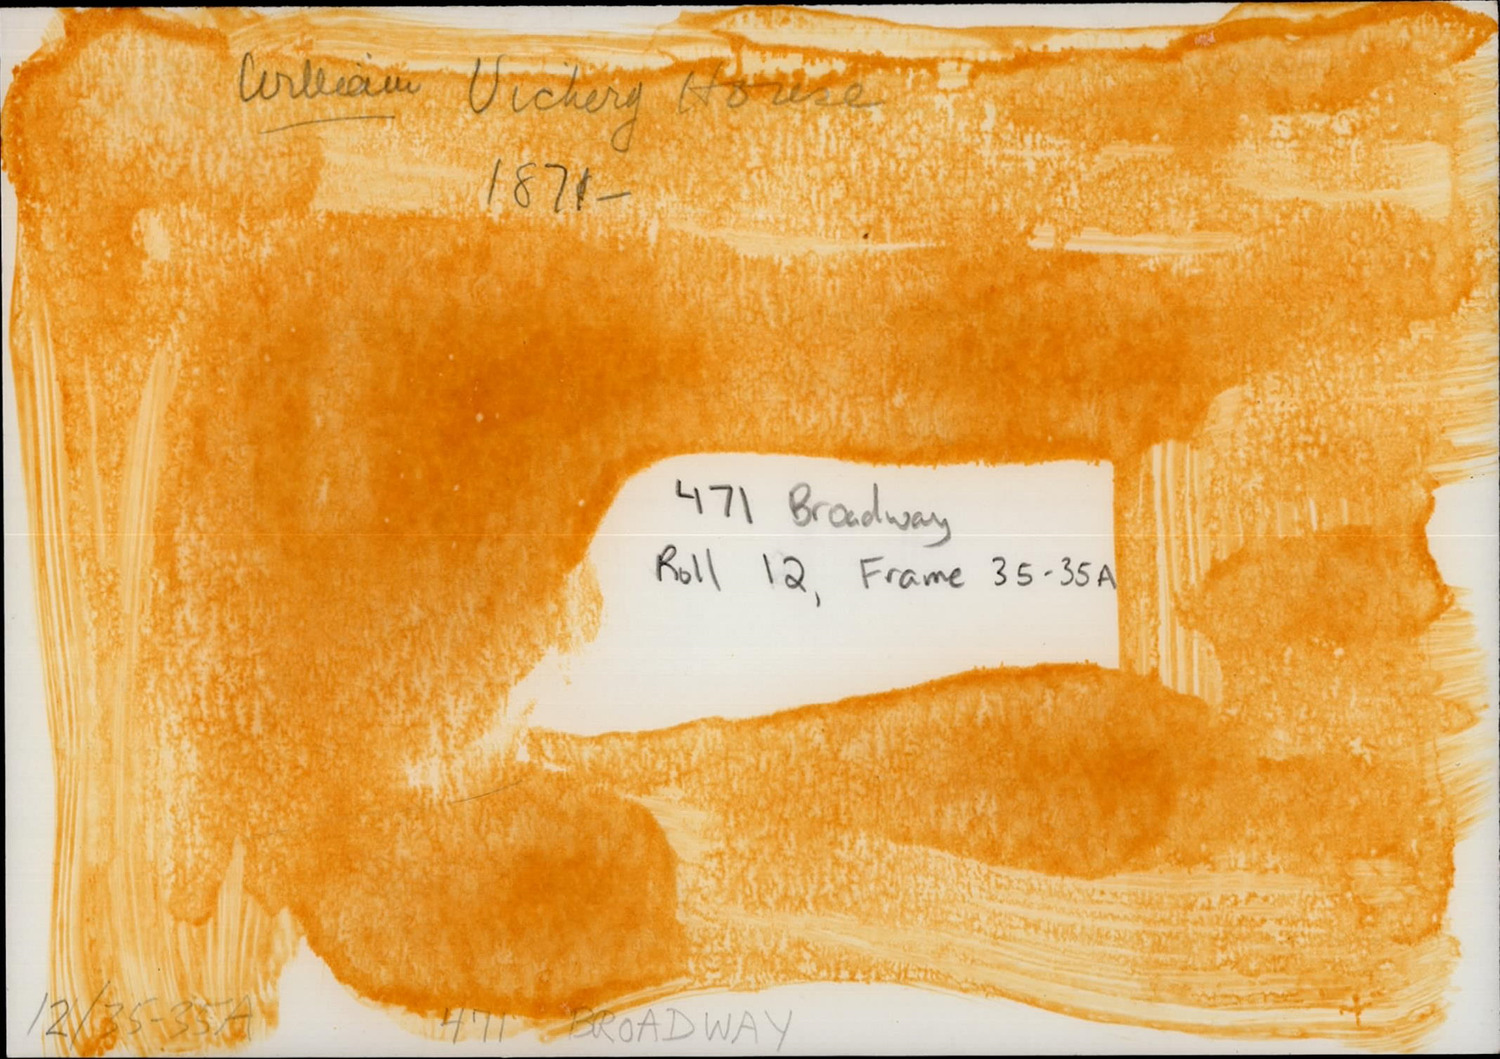 William Vickery House
1871-
471 Broadway
Roll 12, Frame 35-35A
12/35-35A 471 BROADWAY